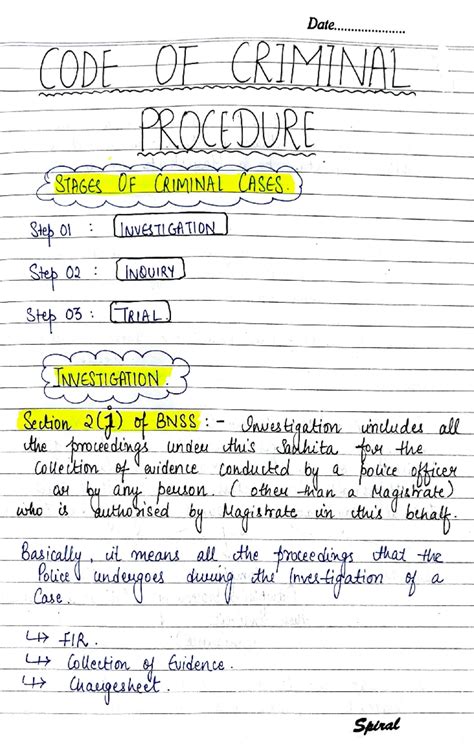 Date.....................
CODE OF CRIMINAL
PROCEDURE
STAGES OF CRIMINAL CASES.
Step 01 : INVESTIGATION
Step 02 : INQUIRY
Step 03 : TRIAL
INVESTIGATION.
Section 2(j) of BNSS : - Investigation includes all
the proceedings under this Sanhita for the
collection of evidence conducted by a police officer
or by any person. (other than a Magistrate)
who is authorised by Magistrate in this behalf.
Basically, it means all the proceedings that the
Police undergoes during the Investigation of a
Case.
↳ FIR.
↳ Collection of Evidence.
↳ Chargesheet.
Spiral